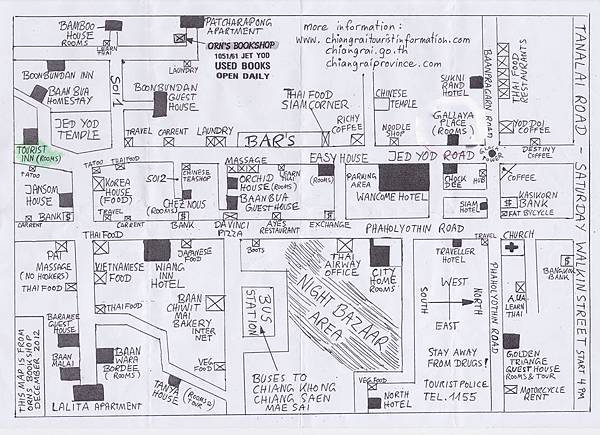 BAMBOO
HOUSE
ROOMS
LEARN
THAI
PATCHARAPONG
APARTMENT
ORN'S BOOKSHOP
1051/61 JET YOD
USED BOOKS
OPEN DAILY
more information:
www.chiangraitouristinformation.com
chiangrai.go.th
chiangraiprovince.com
BOONBUNDAN INN
BAAN BUA
HOMESTAY
SOI 1
LAUNDRY
BOONBUNDAN
GUEST
HOUSE
THAI FOOD
SIAMCORNER
RICHY
COFFEE
CHINESE
TEMPLE
NOODLE
SHOP
SUKNI
RAND
HOTEL
GALLAYA
PLACE
(ROOMS)
BAANPRAGARN ROAD
THAI FOOD
RESTAURANTS
YOD DOI
COFFEE
DESTINY
COFFEE
TANALAI ROAD - SATURDAY WALKIN STREET START 4 PM
JED YOD
TEMPLE
TOURIST
INN (ROOMS)
TRAVEL
CARRENT
LAUNDRY
BAR'S
EASY HOUSE
JED YOD ROAD
TATOO
JANSOM
HOUSE
BANK
$
CARRENT
TATOO
THAIFOOD
KOREA
HOUSE
(FOOD)
TRAVEL
CARRENT
SOI 2
CHINESE
TEASHOP
CHEZ NOUS
(ROOMS)
$
BANK
MASSAGE
ORCHID
HOUSE (ROOMS)
BAAN BUA
GUESTHOUSE
DAVINCI
PIZZA
AYES
RESTAURANT
(ROOMS)
$
EXCHANGE
PARKING
AREA
WANCOME HOTEL
CHOOK
DEE
HUB
SIAM
HOTEL
COFFEE
KASIKORN
BANK
$
FAT BYCYCLE
THAI FOOD
PHAHOLYOTHIN ROAD
PAI
MASSAGE
(NO HOOKERS)
THAI FOOD
VIETNAMESE
FOOD
THAIFOOD
WIANG
INN
HOTEL
JAPANESE
FOOD
BAAN
CHIVIT
MAI
BAKERY
INTER
NET
BOOTS
BUS
STATION
THAI
AIRWAY
OFFICE
NIGHT BAZAAR
AREA
CITY
HOME
ROOMS
TRAVELLER
HOTEL
SOUTH
WEST
NORTH
EAST
TRAVEL
PHAHOLYOTHIN ROAD
CHURCH
A.M.A.
LEARN
THAI
$
BANGKOK
BANK
BARAMEE
GUEST
HOUSE
BAAN
MALAI
BAAN
WARA
BORDEE
(ROOMS)
LALITA APARTMENT
VEG
FOOD
TANYA
HOUSE
(ROOMS)
TOUR
BUSES TO
CHIANG KHONG
CHIANG SAEN
MAE SAI
VEG FOOD
NORTH
HOTEL
STAY AWAY
FROM DRUGS!
TOURIST POLICE
TEL. 1155
GOLDEN
TRIANGLE
GUEST HOUSE
ROOMS & TOUR
MOTORCYCLE
RENT
THIS MAP IS FROM
ORN'S BOOKSHOP
DECEMBER 2012